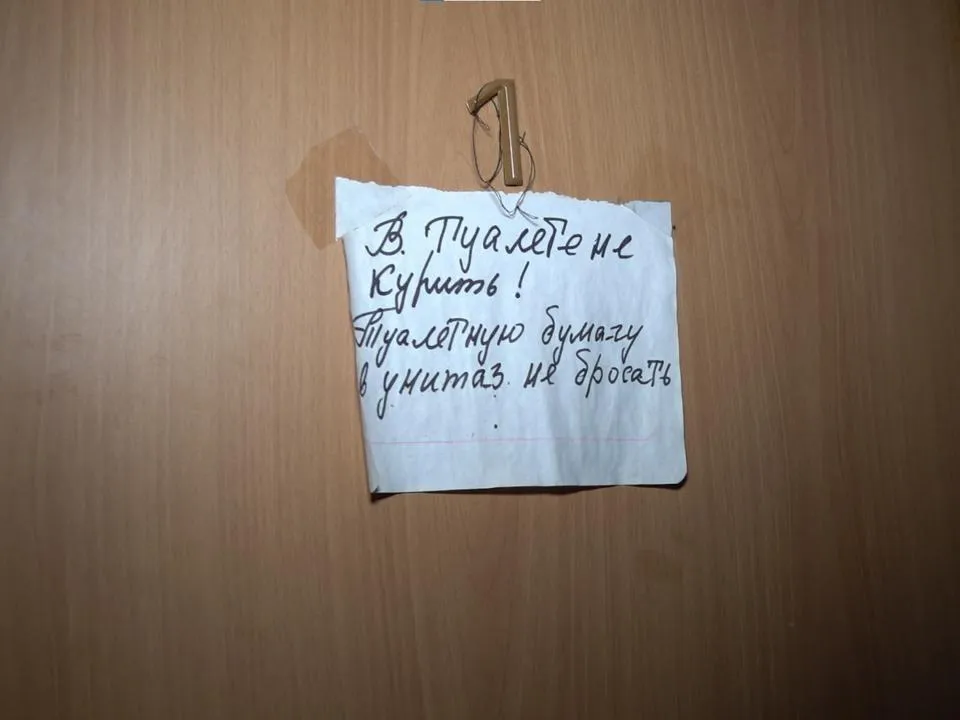 1
В. Туалете не
курить!
Туалетную бумагу
в унитаз. не бросать